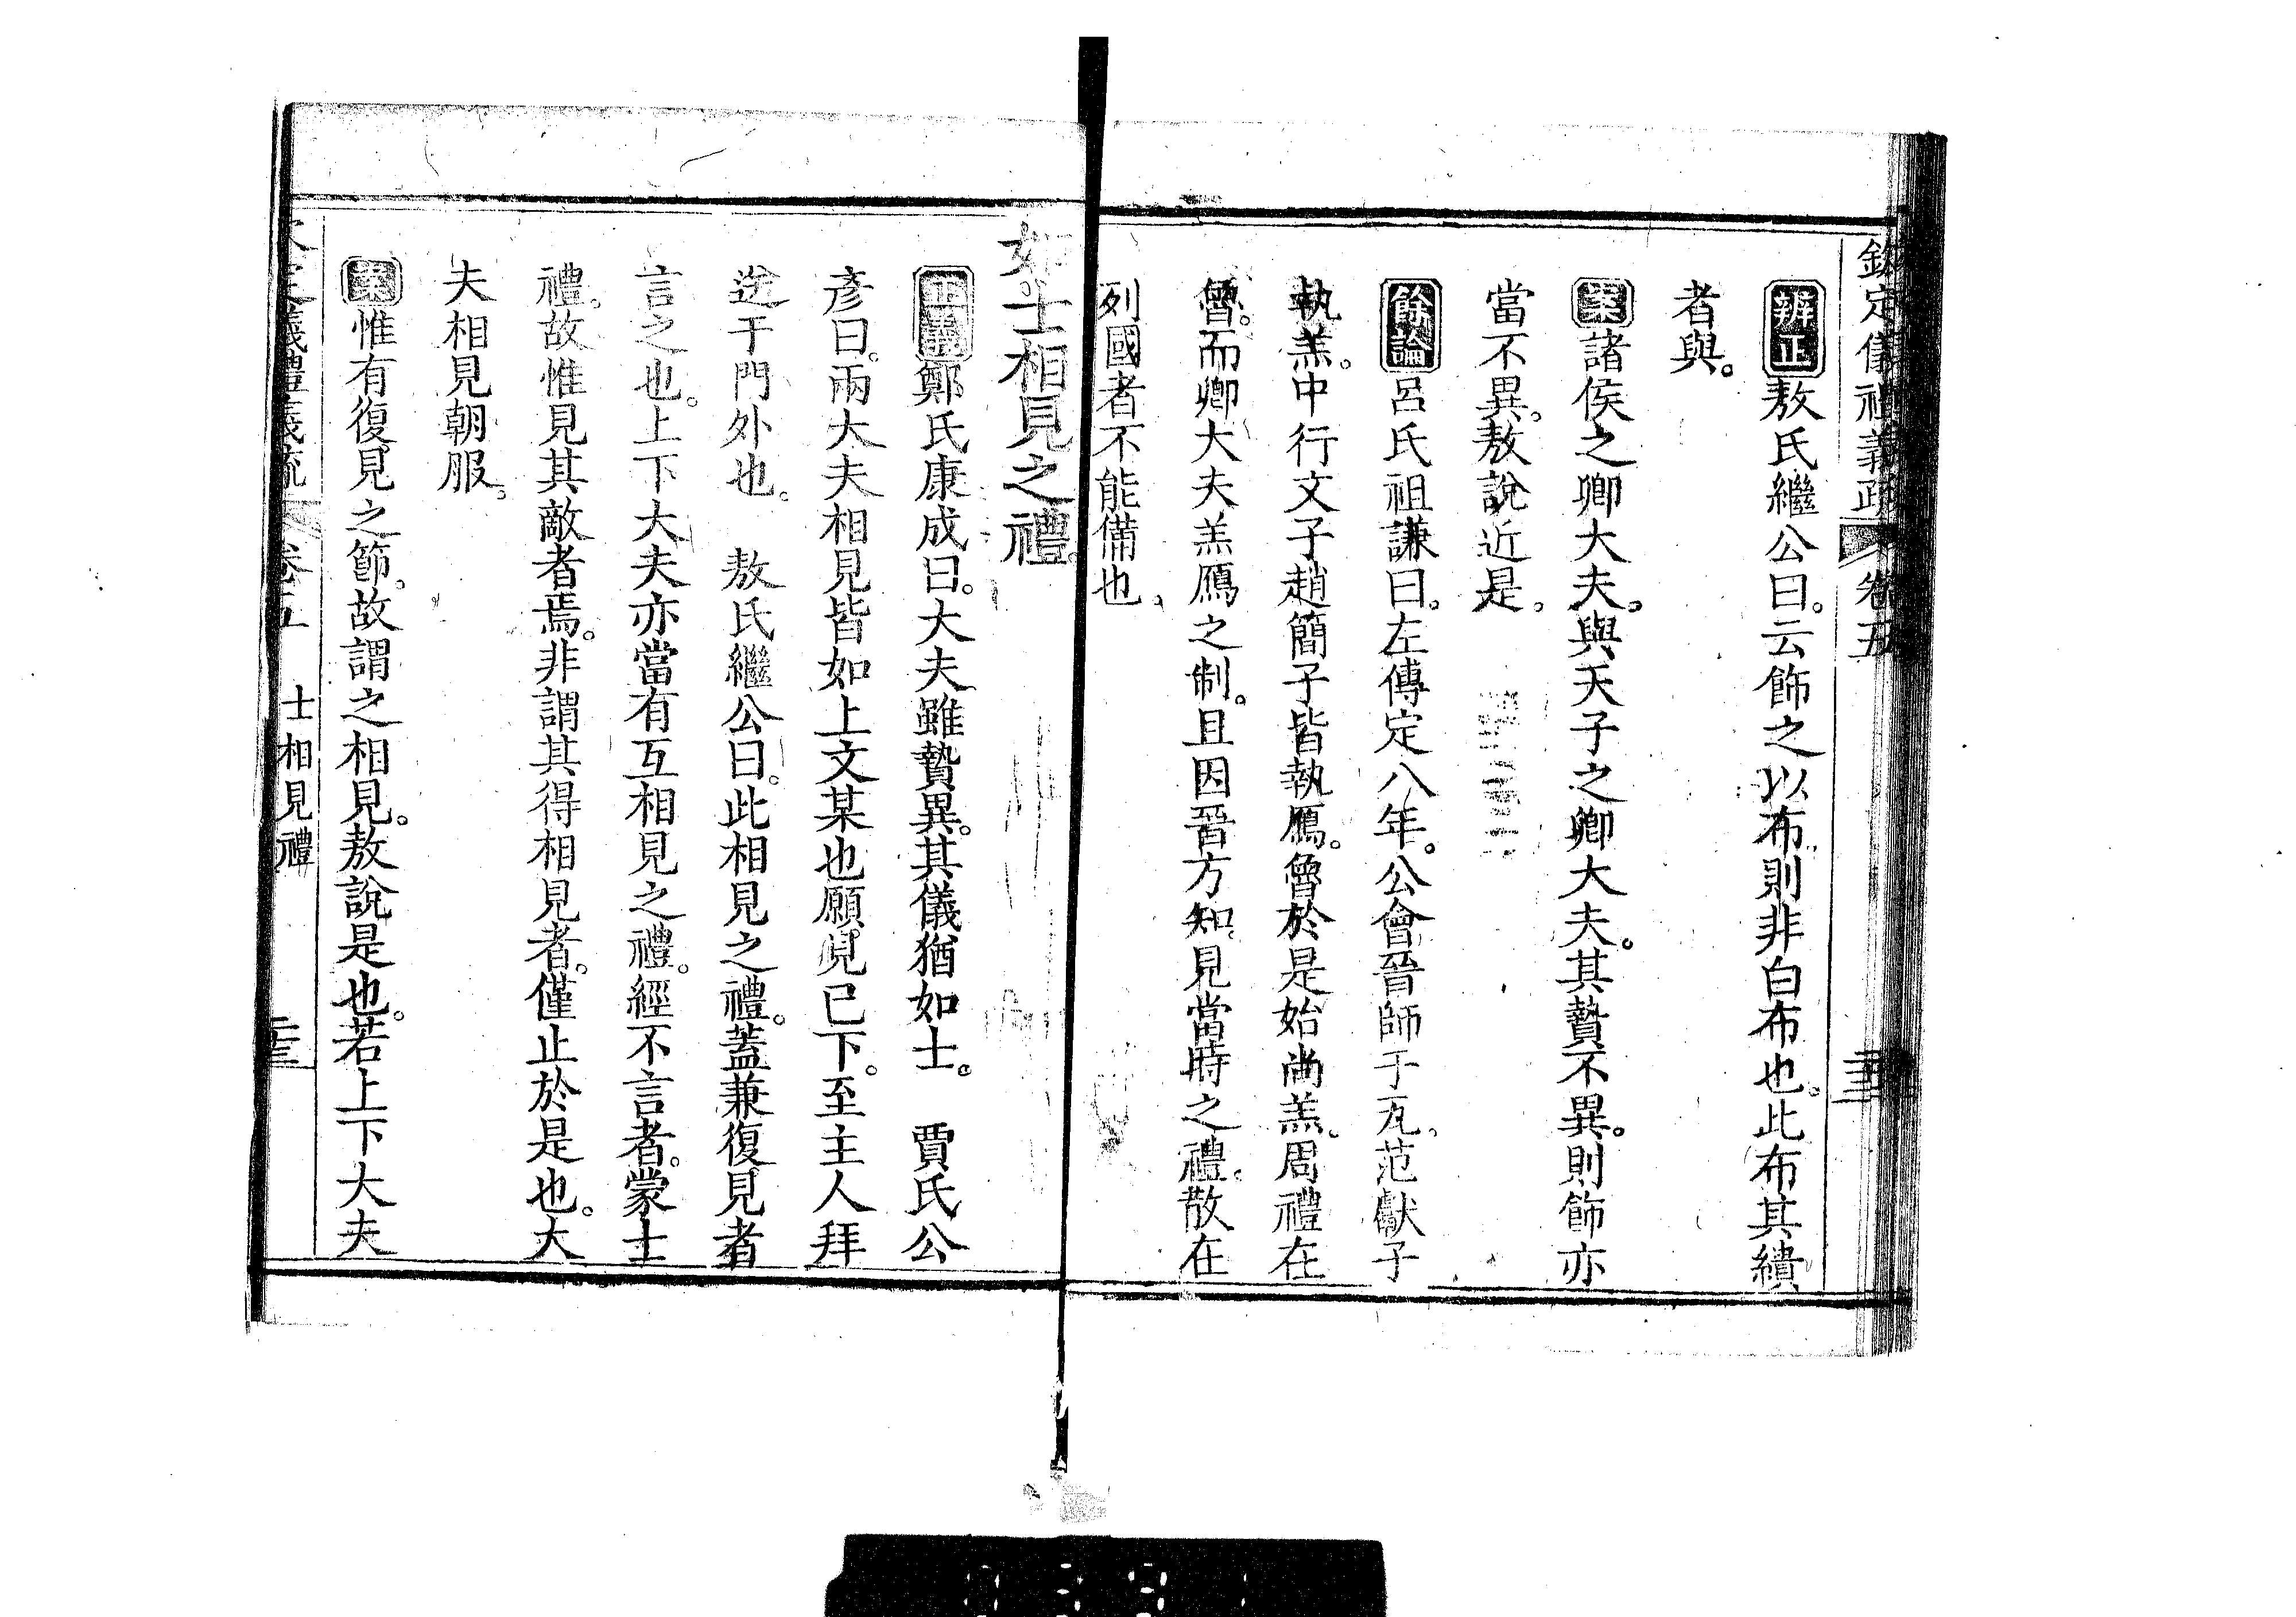 欽定儀禮義疏 卷五
辨正敖氏繼公曰。云飾之以布則非白布也。此布其繢
者與。
案諸侯之卿大夫。與天子之卿大夫。其贄不異。則飾亦
當不異。敖說近是。
餘論呂氏祖謙曰。左傳定八年。公會晉師于瓦。范獻子
執羔。中行文子趙簡子皆執鴈。魯於是始尚羔。周禮在
魯。而卿大夫羔鴈之制。且因晉方知。見當時之禮。散在
列國者不能備也。
如士相見之禮。
正義鄭氏康成曰。大夫雖贄異。其儀猶如士。 賈氏公
彥曰。兩大夫相見皆如上文某也願見已下。至主人拜
送于門外也。 敖氏繼公曰。此相見之禮。蓋兼復見者
言之也。上下大夫亦當有互相見之禮。經不言者。蒙士
禮。故惟見其敵者焉。非謂其得相見者。僅止於是也。大
夫相見朝服。
案惟有復見之節。故謂之相見。敖說是也。若上下大夫
定儀禮義疏 卷五 士相見禮